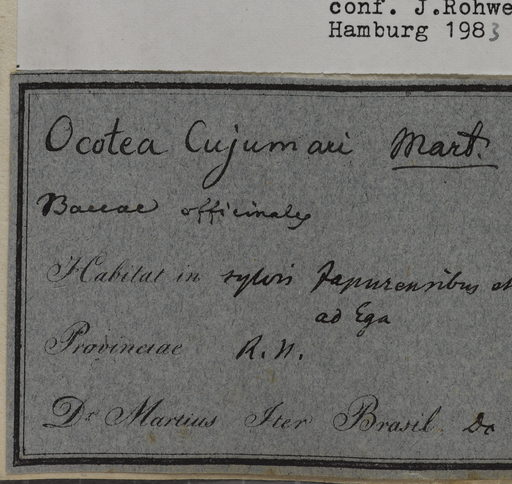 conf. J.Rohwe
Hamburg 1983
Ocotea Cujumari Mart.
Baccae officinales
Habitat in sylvis Japurensibus et
ad Ega
Provinciae R.N.
Dr Martius Iter Brasil. Dc